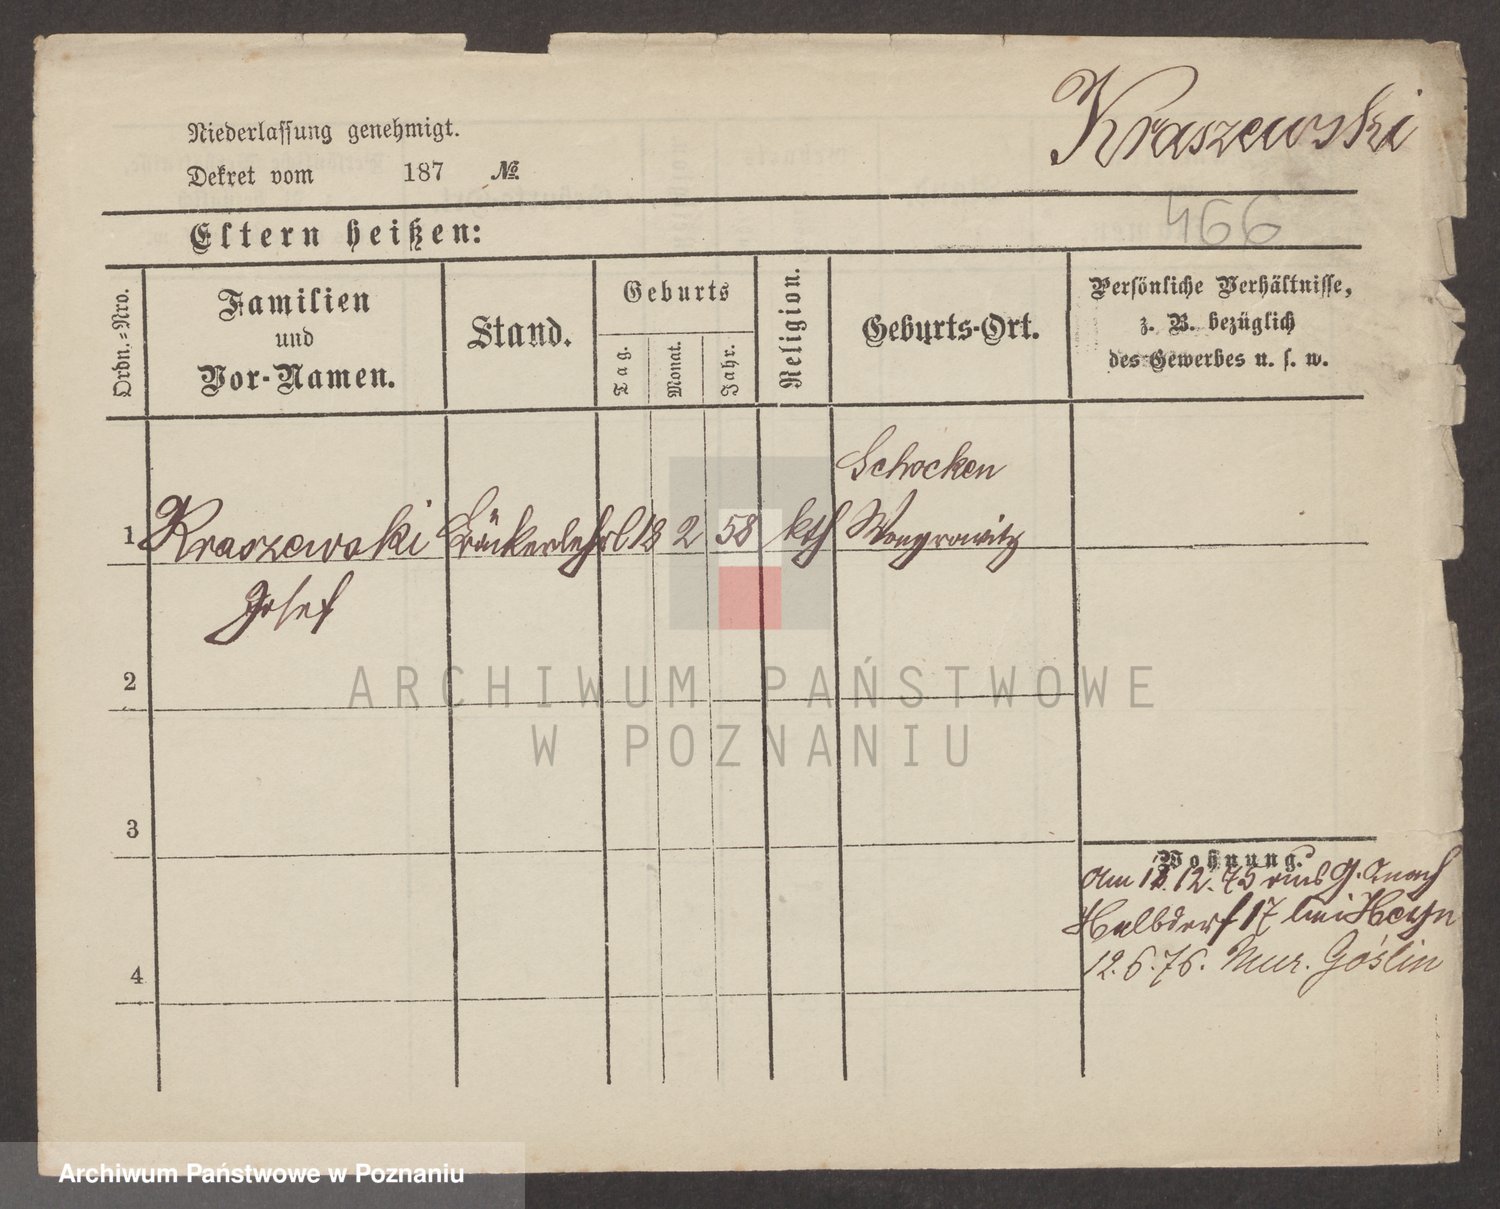 Kraszewski
Niederlassung genehmigt.
Dekret vom 187 №
466
Eltern heißen:
Ordn.-Nro.
Familien
und
Vor-Namen.
Stand.
Geburts
Tag.
Monat.
Jahr.
Religion.
Geburts-Ort.
Persönliche Verhältnisse,
z. B. bezüglich
des Gewerbes u. s. w.
Schocken
1 Kraszewski Bäckerlehrl 18 2 58 kth Wongrowitz
Josef
2
3
4
Wohnung.
Am 12.75
Halbdorf 17 bei Heyn
12.6.76. Mur. Goślin
ARCHIWUM PAŃSTWOWE
W POZNANIU
Archiwum Państwowe w Poznaniu